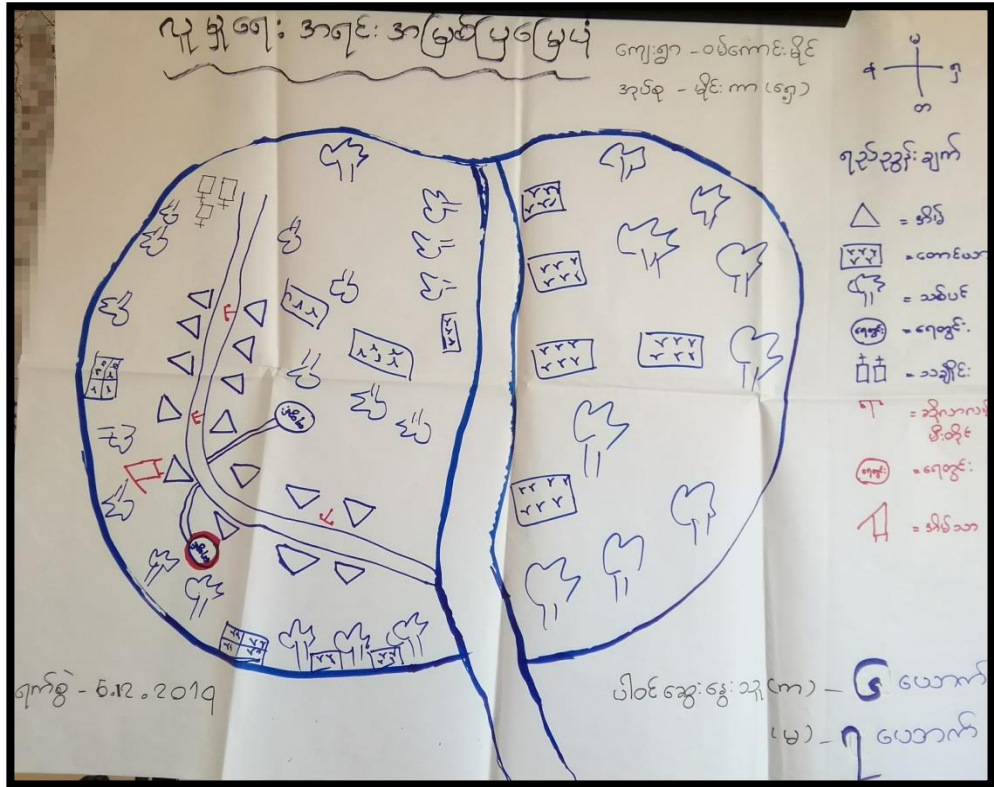 လူမှုရေး အရင်းအမြစ်ပြမြေပုံ
ကျေးရွာ - ဝမ်ကောင်းမိုင်
အုပ်စု - မိုင်းကာ (ရှေ့)
မ
န ရှ
တ
ရည်ညွှန်းချက်
= အိမ်
= တောင်ယာ
= သစ်ပင်
ရေတွင်း = ရေတွင်း
= သချိုင်း
= ဆိုလာလမ်း
မီးတိုင်
ရေတွင်း = ရေတွင်း
= အိမ်သာ
ရေတွင်း
ရေတွင်း
ရက်စွဲ - 5.12.2019
ပါဝင်ဆွေးနွေးသူ (ကာ) - ၆ ယောက်
(မ) - ၇ ယောက်